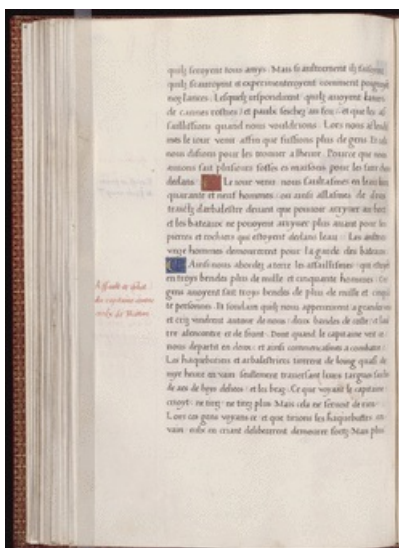 quilz seroyent tous amys. Mais si aultrement ilz faisoyent
quilz scauroyent et experimenteroyent comment poignoyent
noz lances. Lesquelz respondirent quilz auoyent lances
de cannes rosties: et paulx seichez au feu: et que les as
saillissions quand nous vouldrions. Lors nous attendi
mes le iour venir affin que fussions plus de gens. Et cela
nous disions pour les trouuer a lheure. Pource que nous
auions fait plusieurs fosses es maisons pour les faire cheoir
dedans. Le iour venu nous saultasmes en leau bien
quarante et neuf hommes: ou ainsi allasmes de deux
traictz darbalestre deuant que pouuoir arryuer au bort
et les bateaux ne pouoyent arryuer plus auant pour les
pierres et rochiers qui estoyent dedans leau. Les aultres
unze hommes demourerent pour la garde des bateaux.
Ainsi nous abordez a terre les assaillismes: qui estoyent
en troys bendes plus de mille et cinquante hommes: Ces
gens auoyent fait troys bendes de plus de mille et cinq
personnes. Et soudain quilz nous apperceurent a grandz
et criz vindrent autour de nous: deux bendes de coste et laul
tre alencontre et de front. Dont quand le capitaine veit ce
nous departit en deux: et ainsi commencasmes a combatre.
Les haquebotiers et arbalestriers tirerent de loing quasi de
mye heure en vain seullement trauersant leurs targues
de aes de boys deliees: et les bras. Ce que voyant le capitaine
crioyt: ne tirez: ne tirez plus. Mais cela ne seruoit de rien.
Lors ces gens voyans ce: et que tirions les haquebottes en
vain: eulx en criant delibererent demourer fortz. Mais plus
Assault et
du capitaine contre
ceulx de Mattan